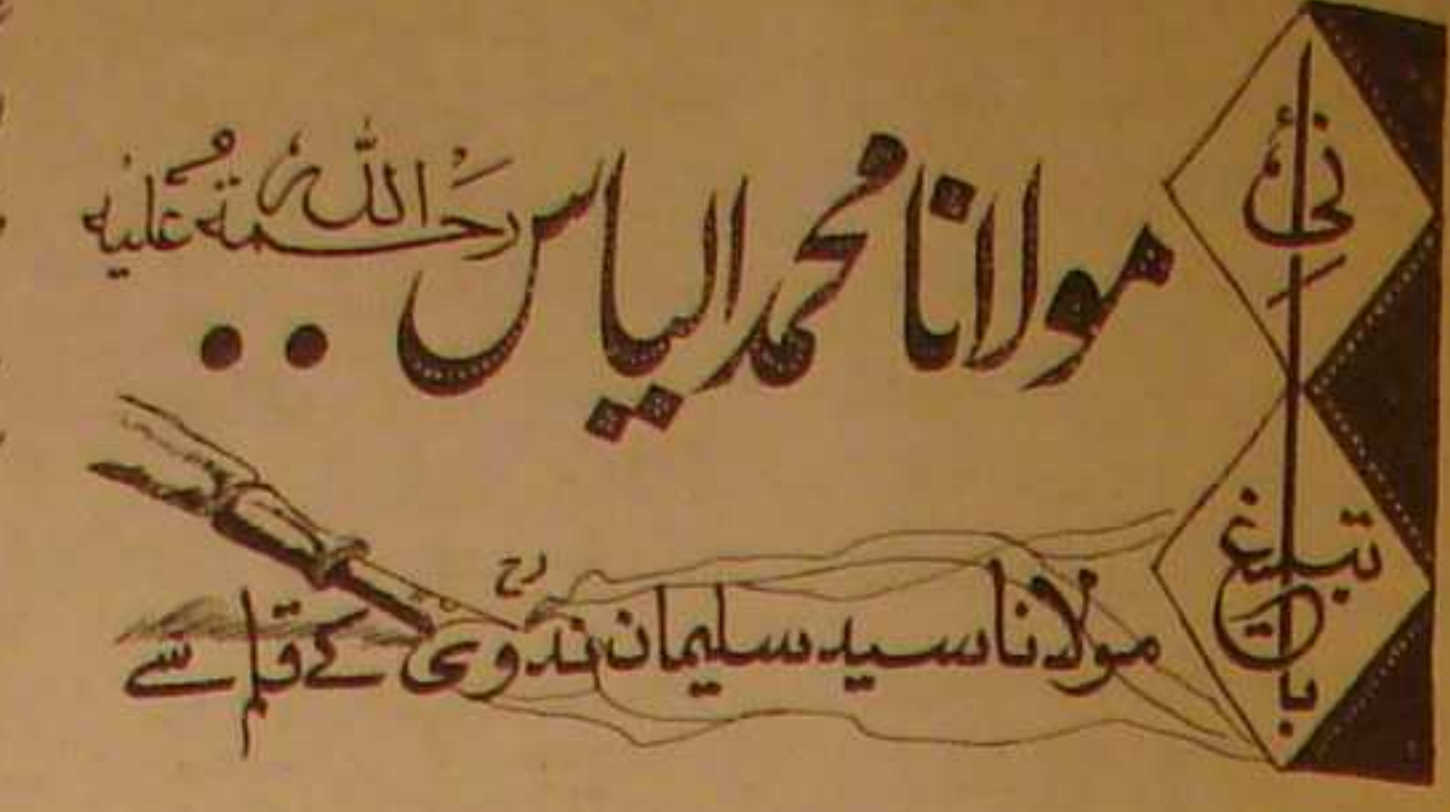 بانیٔ تبلیغ
مولانا محمد الیاس رحمۃ اللہ علیہ ..
مولانا سید سلیمان ندویؒ کے قلم سے